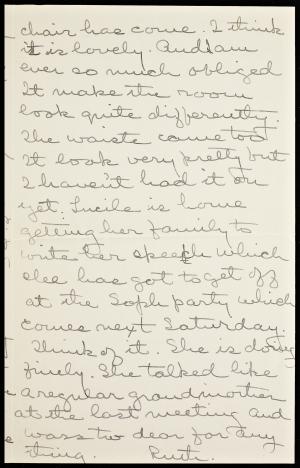 chair has come. I think
it is lovely. And I am
ever so much obliged
It make the room
look quite differently.
The waiste came too
It look very pretty but
I haven't had it on
yet. Lucile is home
getting her family to
write her speach which
she has got to get off
at the Soph party which
comes next Saturday.
Think of it. She is doing
finely. She talked like
a regular grandmother
at the last meeting and
was too dear for any
thing. Ruth.